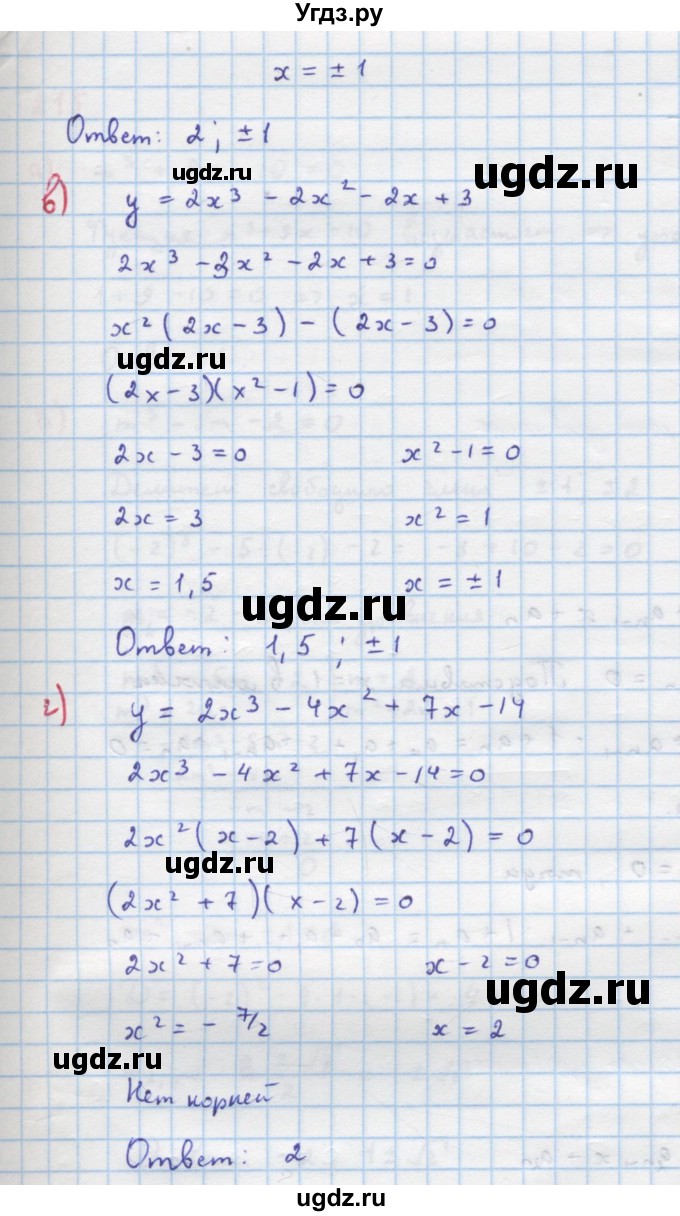 Угдз.ру
x = ± 1
Ответ: 2 ; ± 1
ugdz.ru
ugdz.ru
в) y = 2x³ - 2x² - 2x + 3
2x³ - 3x² - 2x + 3 = 0
x² ( 2x - 3 ) - ( 2x - 3 ) = 0
ugdz.ru
( 2x - 3 )( x² - 1 ) = 0
2x - 3 = 0 x² - 1 = 0
2x = 3 x² = 1
x = 1,5 x = ± 1
ugdz.ru
Ответ: 1,5 ; ± 1
г) y = 2x³ - 4x² + 7x - 14
2x³ - 4x² + 7x - 14 = 0
2x² ( x - 2 ) + 7 ( x - 2 ) = 0
ugdz.ru
( 2x² + 7 )( x - 2 ) = 0
2x² + 7 = 0 x - 2 = 0
ugdz.ru
x² = - 7/2 x = 2
ugdz.ru
Нет корней
Ответ: 2
ugdz.ru